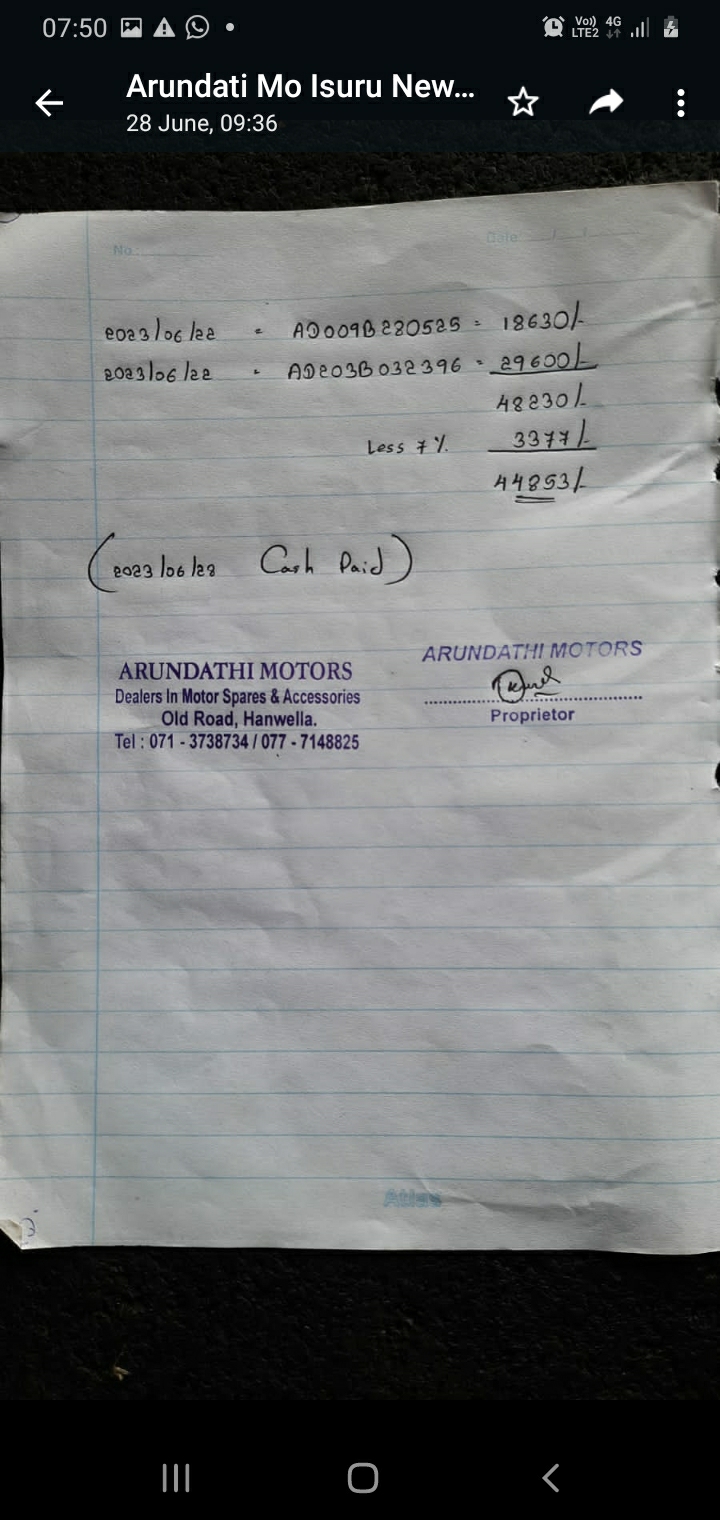 07:50 Vo)) LTE2 4G
Arundati Mo Isuru New...
28 June, 09:36
No Date
2023/06/22 = AD009B280525 = 18630/-
2023/06/22 = AD203B032396 = 29600/-
48230/-
Less 7% 3377/-
44853/-
(2023/06/28 Cash Paid)
ARUNDATHI MOTORS
Dealers In Motor Spares & Accessories
Old Road, Hanwella.
Tel : 071 - 3738734 / 077 - 7148825
ARUNDATHI MOTORS
Proprietor
Atlas